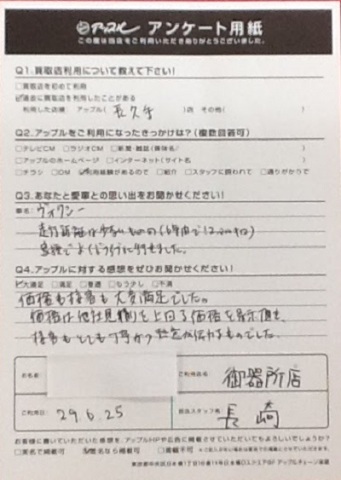 アップル アンケート用紙
この度は当店をご利用いただきありがとうございました。
Q1.買取店利用について教えて下さい!
□買取店を初めて利用
☑過去に買取店を利用したことがある
利用した店舗: アップル( 長久手 )店 その他( )
Q2.アップルをご利用になったきっかけは?(複数回答可)
□テレビCM □ラジオCM □新聞・雑誌(媒体名/ )
□アップルのホームページ □インターネット(サイト名 )
□チラシ □DM ☑利用経験があるので □紹介 □スタッフに誘われて □通りがかりで
Q3.あなたと愛車との思い出をお聞かせください!
車名:
ました。
Q4.アップルに対する感想をぜひお聞かせください!
☑大満足 □満足 □普通 □もう少し □不満
価格も接客も大変満足でした。
価格は他社見積りを上回る価格を表示頂き、
接客もとても丁寧かつ熱意が伝わるものでした。
お名前
ご利用店名
御器所店
ご利用日
29.6.25
担当スタッフ名
長崎
お客様に書いていただいた感想を、アップルHPや広告に掲載させていただいてもよろしいでしょうか?
□実名で掲載可 ☑匿名なら掲載可 □掲載不可